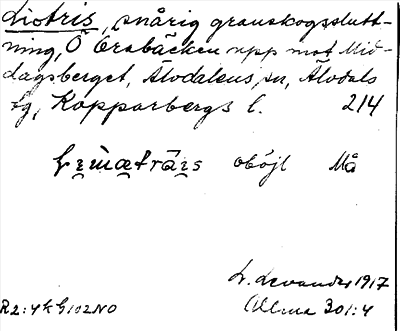 Liotris, snårig granskogsslutt-
ning, Ö Örsbäcken upp mot Mid-
dagsberget, Älvdalens sn, Älvdals
tg, Kopparbergs l. 214
oböjl Må
L. Levander 1917
Allma 301:4
R2:4k G102NO